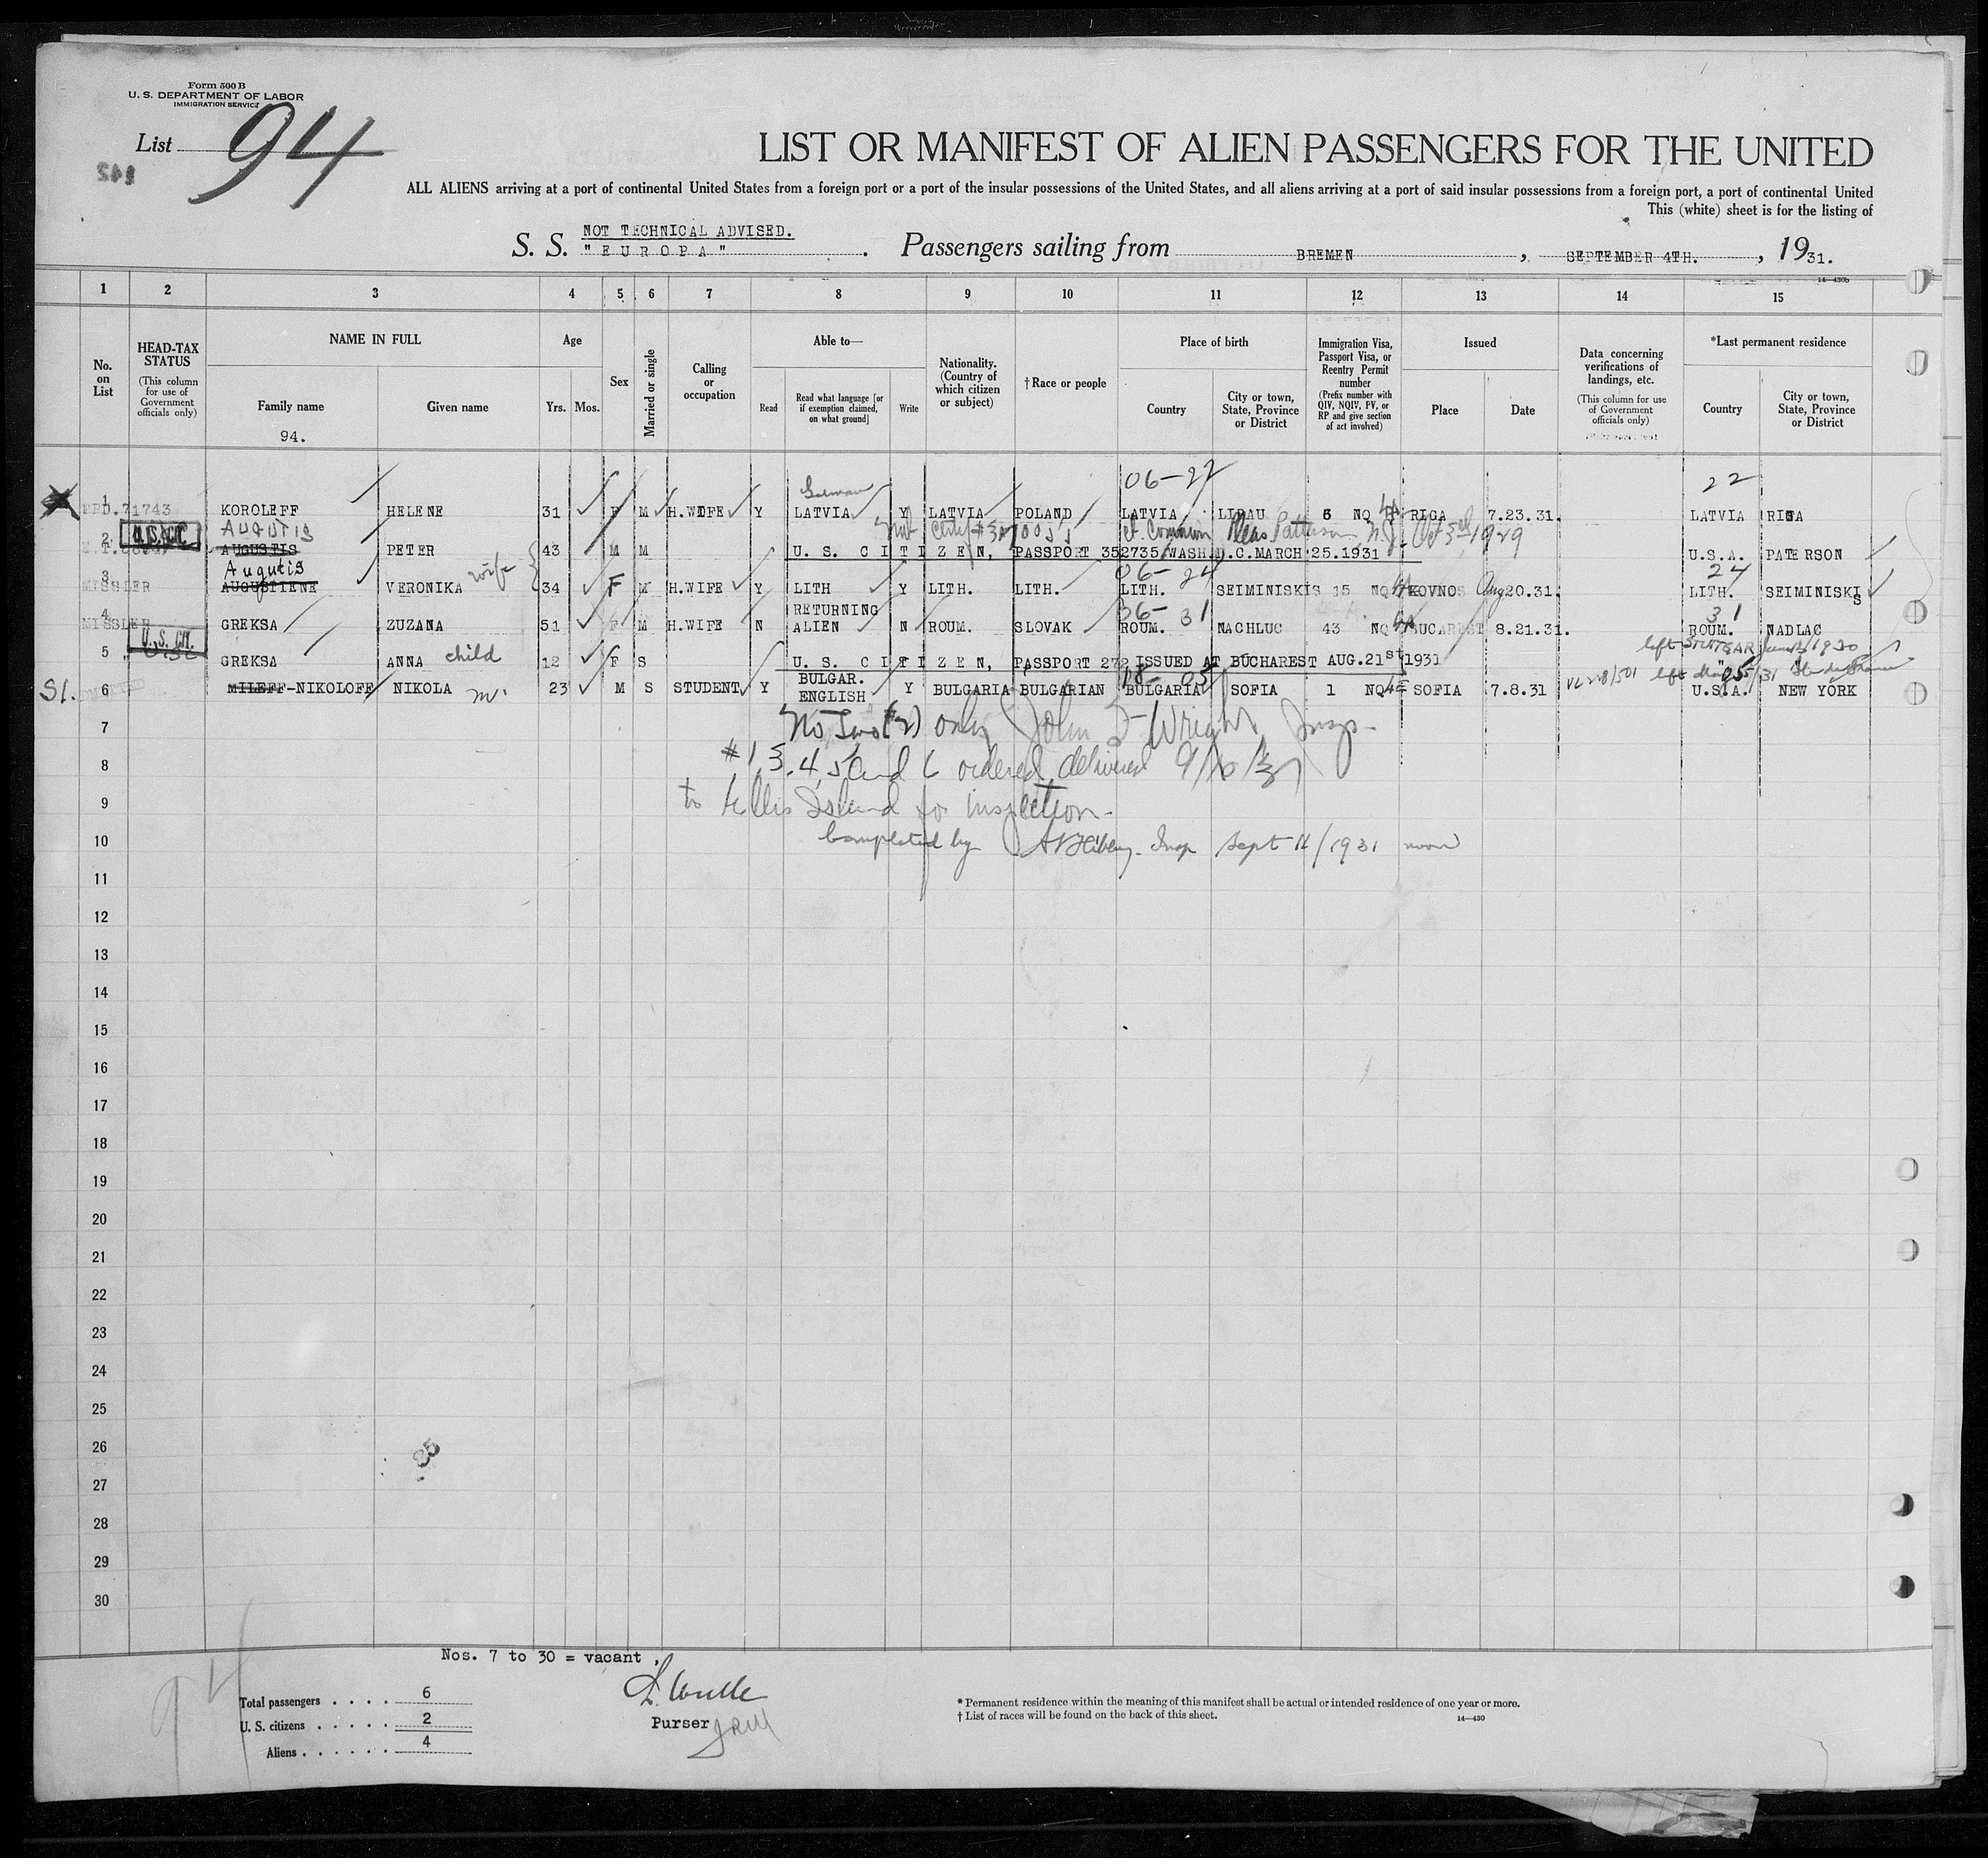 Form 500 B
U. S. DEPARTMENT OF LABOR
IMMIGRATION SERVICE
List 94
LIST OR MANIFEST OF ALIEN PASSENGERS FOR THE UNITED
ALL ALIENS arriving at a port of continental United States from a foreign port or a port of the insular possessions of the United States, and all aliens arriving at a port of said insular possessions from a foreign port, a port of continental United
This (white) sheet is for the listing of
NOT TECHNICAL ADVISED.
S. S. "EUROPA". Passengers sailing from BREMEN, SEPTEMBER 4TH., 1931.
1 2 3 4 5 6 7 8 9 10 11 12 13 14 15
No. on List
HEAD-TAX STATUS (This column for use of Government officials only)
NAME IN FULL
Family name
94.
Given name
Age
Yrs. Mos.
Sex
Married or single
Calling or occupation
Able to—
Read
Read what language [or if exemption claimed, on what ground]
Write
Nationality. (Country of which citizen or subject)
†Race or people
Place of birth
Country
City or town, State, Province or District
Immigration Visa, Passport Visa, or Reentry Permit number (Prefix number with QIV, NQIV, PV, or RP and give section of act involved)
Issued
Place
Date
Data concerning verifications of landings, etc. (This column for use of Government officials only)
*Last permanent residence
Country
City or town, State, Province or District
German 06-22 22
1 71743 KOROLEFF HELENE 31 F M H.WIFE Y LATVIA Y LATVIA POLAND LATVIA LIBAU 6 NQ RIGA 7.23.31. LATVIA RIGA
AUGUTIS Ct. Common Pleas Patterson N.J. Oct 3rd 1929
2 U.S. CIT. AUGUSTIS PETER 43 M M U. S. CITIZEN, PASSPORT 352735 WASH.D.C. MARCH 25.1931 U.S.A. PATERSON
Augutis 06-24 24
3 MISSLER AUGUSTIENE VERONIKA wife 34 F M H.WIFE Y LITH Y LITH. LITH. LITH. SEIMINISKIS 15 NQ KOVNO Aug 20.31. LITH. SEIMINISKIS
RETURNING 36-31 31
4 MISSLER GREKSA ZUZANA 51 F M H.WIFE N ALIEN N ROUM. SLOVAK ROUM. NACHLUC 43 NQ BUCAREST 8.21.31. ROUM. NADLAC
5 U.S. CIT. GREKSA ANNA child 12 F S U. S. CITIZEN, PASSPORT 272 ISSUED AT BUCHAREST AUG.21st 1931
BULGAR. 18-05
6 SI. MILEFF-NIKOLOFF NIKOLA m. 23 M S STUDENT Y ENGLISH Y BULGARIA BULGARIAN BULGARIA SOFIA 1 NQ SOFIA 7.8.31 U.S.A. NEW YORK
7 No Two (#2) only John J Wright Insp.
8 #1, 3, 4, 5 and 6 ordered delivered 9/10/31
9 to Ellis Island for inspection.
10 Completed by Insp Sept 11/1931 noon
11
12
13
14
15
16
17
18
19
20
21
22
23
24
25
26
27
28
29
30
Nos. 7 to 30 = vacant.
Total passengers . . . . 6
U. S. citizens . . . . . 2
Aliens . . . . . . 4
Purser
* Permanent residence within the meaning of this manifest shall be actual or intended residence of one year or more.
† List of races will be found on the back of this sheet.
14—430